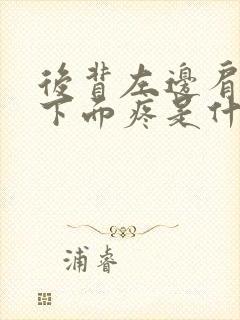 後背左邊肩
下面疼是什
浦睿